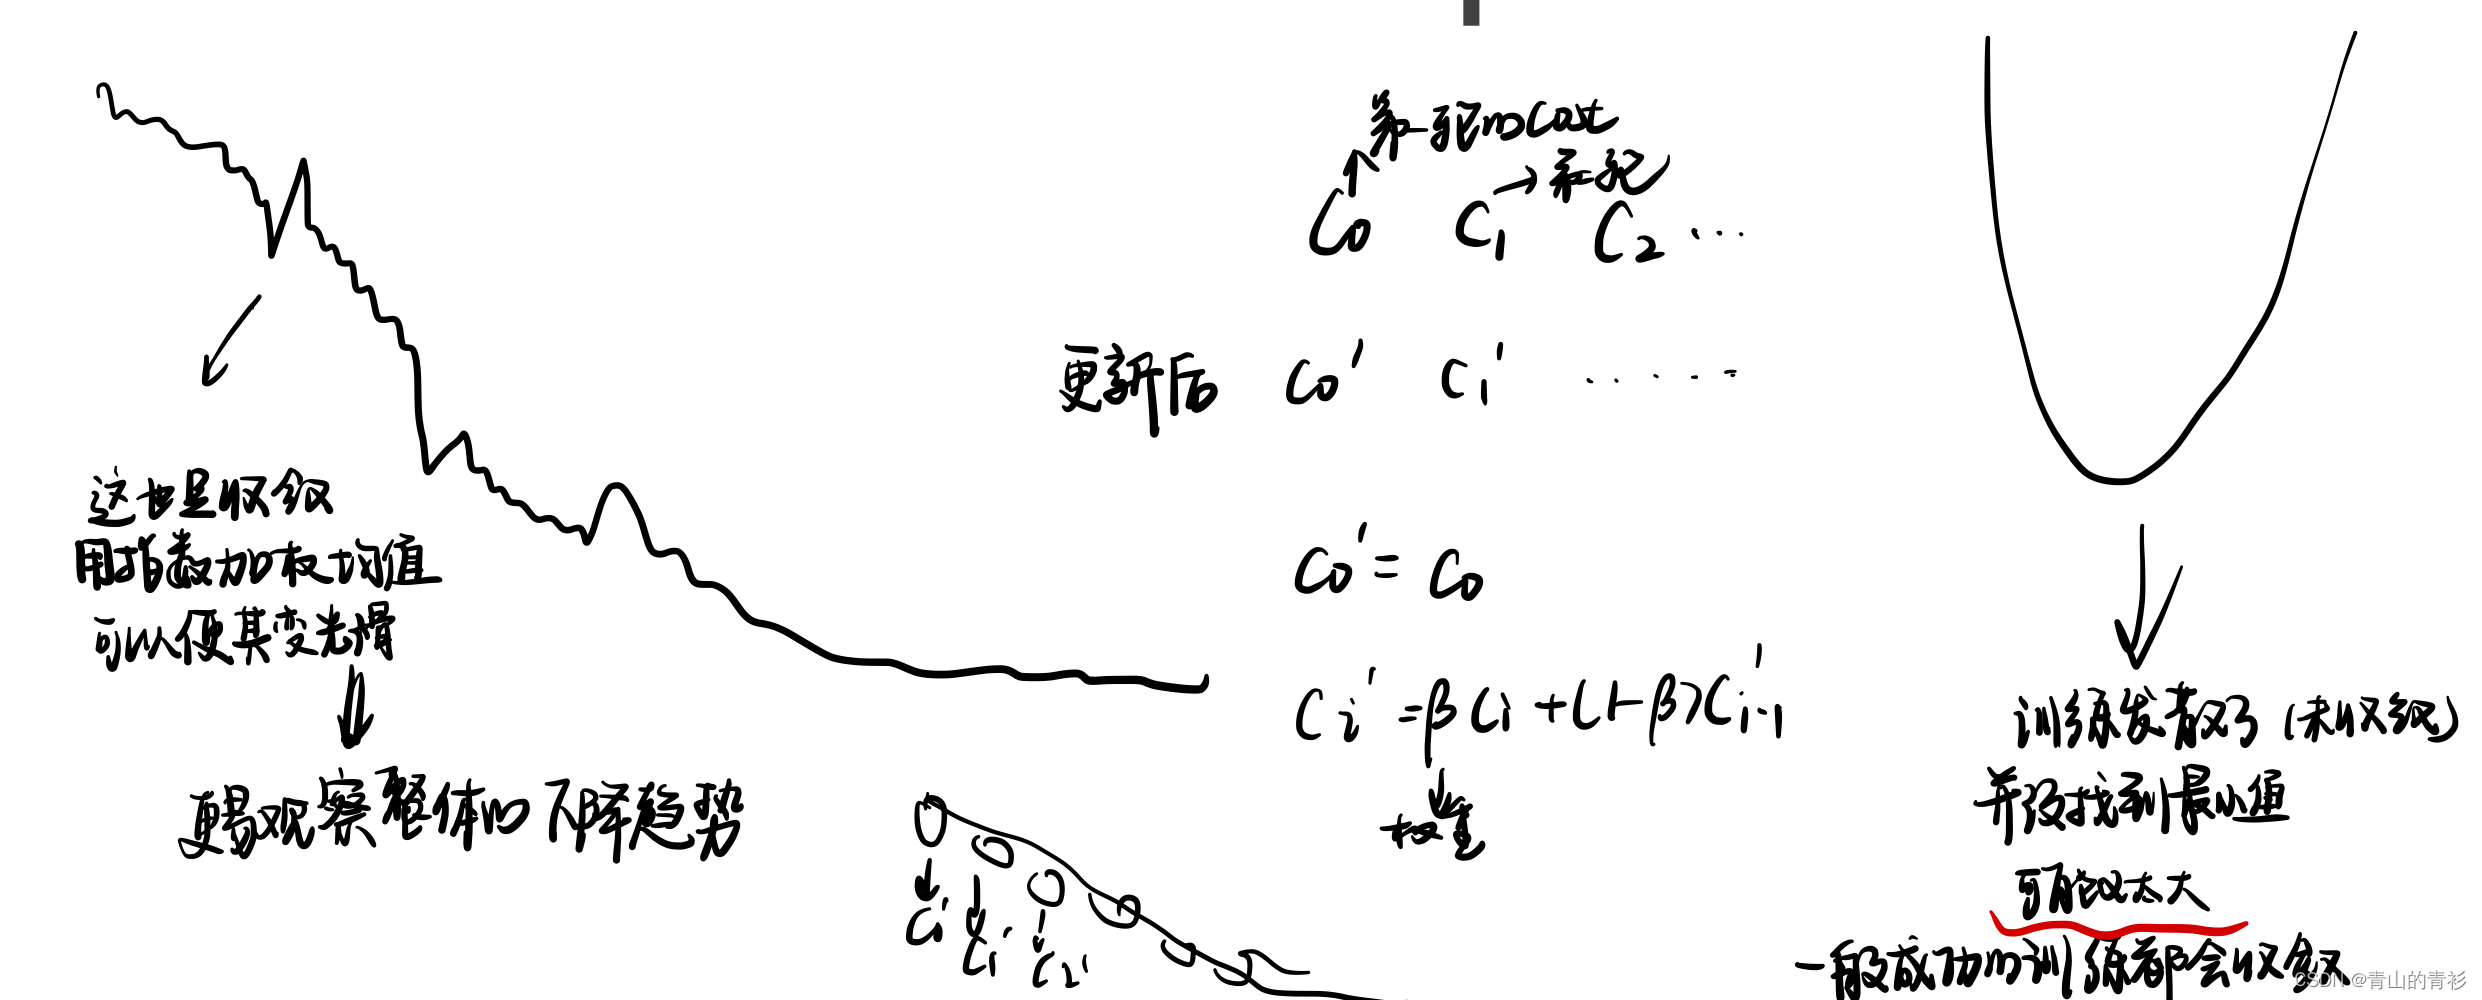 第一轮的Cost
→第二轮
C₀ C₁ C₂ ...
更新后 C₀' C₁' ......
这也是收敛
用指数加权均值
可以使其变光滑
更易观察整体的下降趋势
C₀' = C₀
Cᵢ' = βCᵢ + (1-β)Cᵢ₋₁'
权重
C₁' C₂'
训练发散了(未收敛)
并没找到最小值
可能α太大
一般成功的训练都会收敛
CSDN @青山的青衫